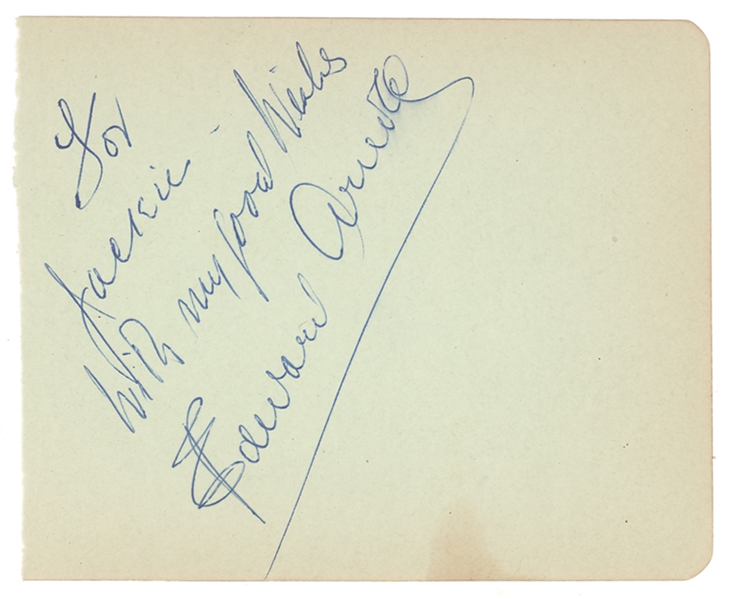 For
Jackie -
With my good Wishes
Edward Arnold